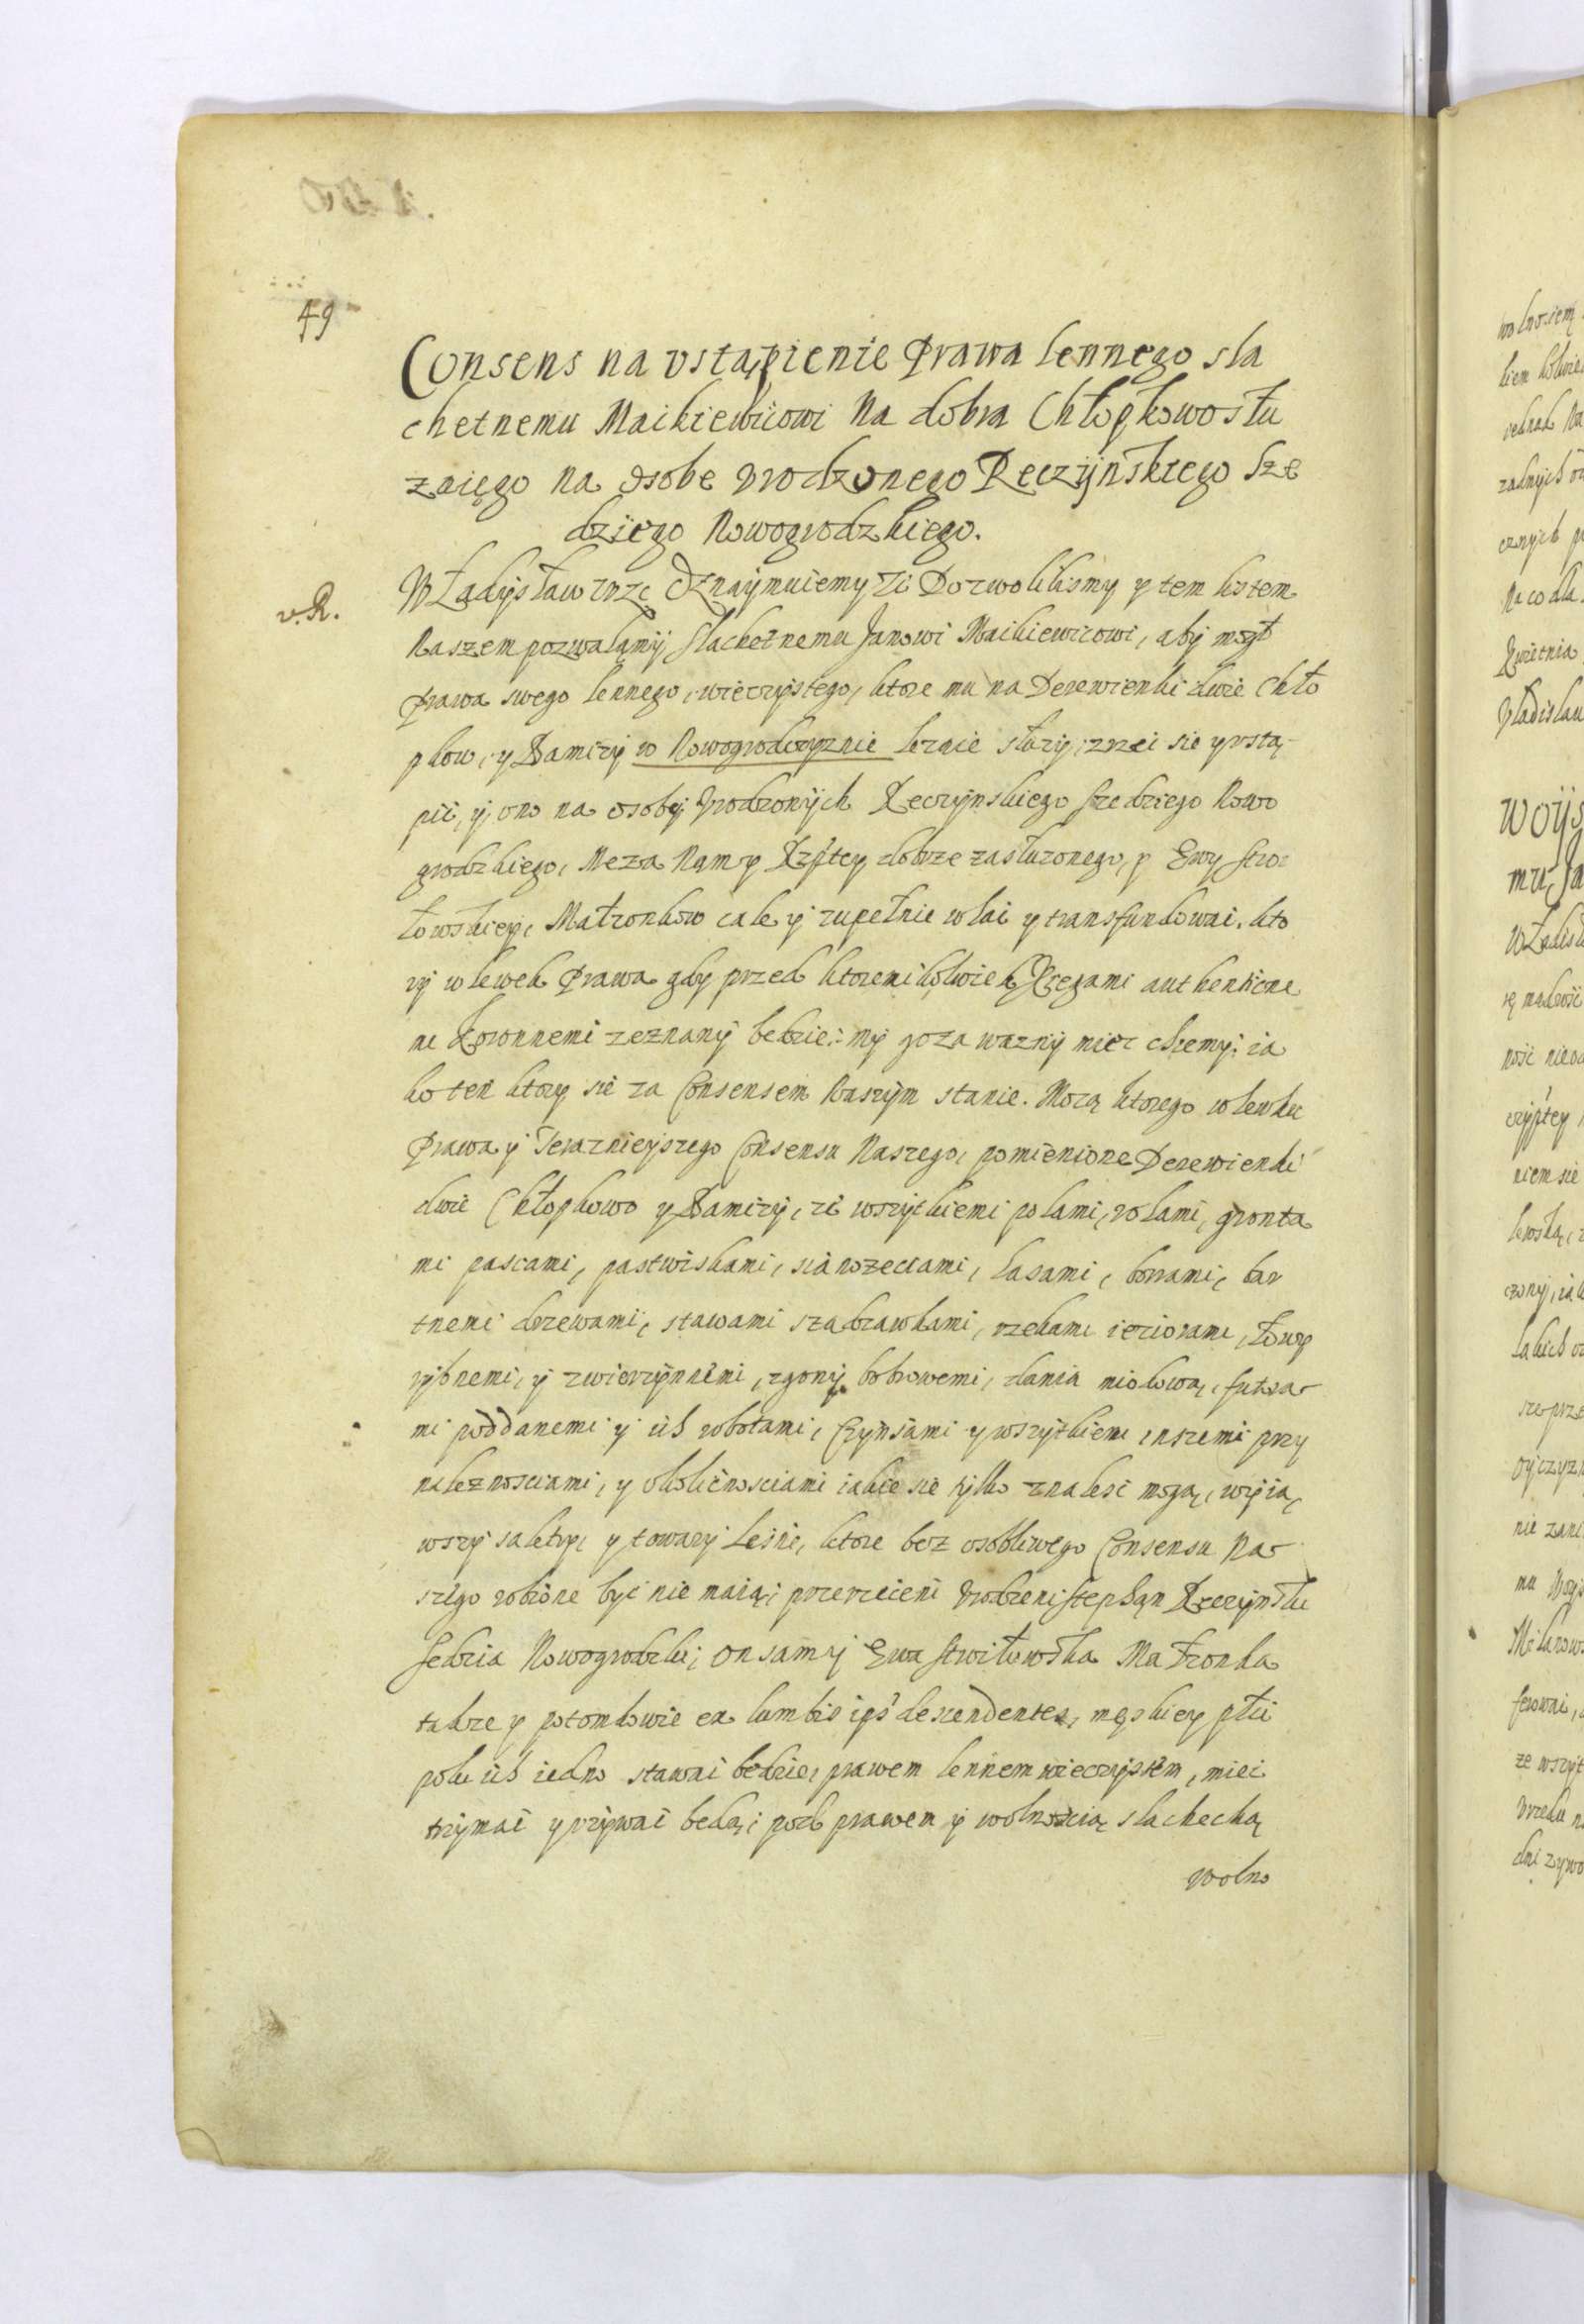 49
Consens na vstąpienie Prawa lennego sla
chetnemu Maikiewicowi na dobra Chłopkowo słu
zaięgo na osobe vrodzonego Reczÿnskiego Sze
dzÿego Nowogrodzkiego.
v. R.
Władÿsław rzc Oznaÿmuiemy zi Dozwolilismy y tem listem
Naszem pozwalamÿ slachetnemu Janowi Maikiewicowi, abÿ mogł
Prawa swego lennego, wieczÿstego, ktore mu na Derewienki dwie Chło
pkow, y Damirÿ w Nowogrodczyznie lezaie słuzÿ, zrzei sie y vstą-
pić, ÿ ono na osobÿ Vrodzonÿch Reczÿnskiego szedziego Nowo
grodzkiego, Meza Nam y Rzptey dobrze zasłuzonego, y Ewy stwi
łowskiey, Małzonkow cale ÿ zupełnie wlai y transfundowai. kto
rÿ wlewek Prawa gdy przed ktoremikolwiek Xięgami authentične
mi Koronnemi zeznanÿ bedzie: mÿ go za waznÿ miec chcemy: ia
ko ten ktory sie za Consensem Naszÿm stanie. Mocą ktorego wlewku
Prawa ÿ Terazniejszego Consensu Naszego, pomienione Derewienki
dwie Chłopkowo y Damirÿ, ze wszÿtkiemi polami, rolami, gronta
mi pascami, pastwiskami, sianozeciami, lasami, borrami, bar
tnemi drzewami, stawami szadzawkami, rzekami ieziorami, łowy
rÿbnemi, ÿ zwierzÿnnemi, zgonÿ bobrowemi, dania miodową, futora-
mi poddanemi ÿ ich robotami, Czÿnsami y wszÿtkiemi inszemi przy
naleznosciami, y okolicnosciami iakie sie tÿlko znalesc mogą, wÿią
wszÿ saletrÿ, y towarÿ lesne, ktore bez osobliwego Consensu Na-
szego robione bÿć nie maią: przerzeceni Vrodzeni stephan Reczÿnski
sedzia Nowogrodzki, on sam ÿ Ewa stwiłowska Małzonka
takze y potomkowie ex lumbis ips' descendentes, męskiey płci
poki ich iedno stawai bedzie, prawem lennem wieczÿstem, miec
trzÿmac y vzÿwai bedą: pod prawem ÿ wolnoscią slachecką
wolno